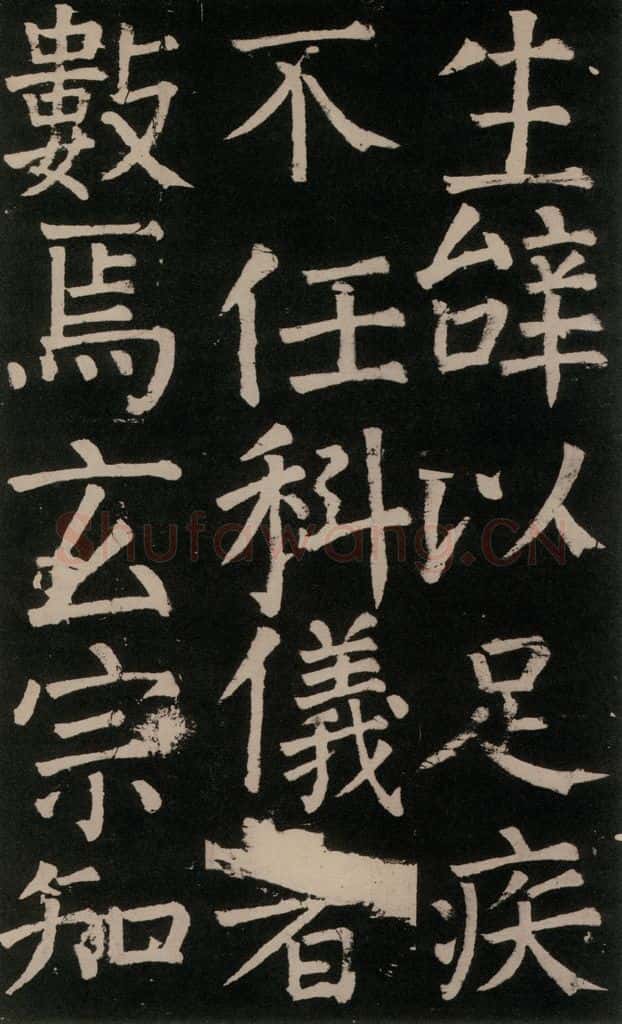 生辝以足疾
不任科儀者
數焉玄宗知
Shufawang.CN